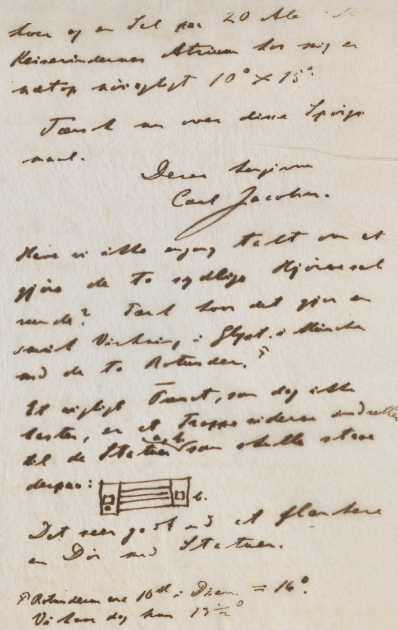 hver og en Sal paa 20 Al
Keiserindernes Atrium hos mig er
netop nöiagtigt 10° × 15°
Tænk nu over disse Spörgs
maal.
Deres hengivne
Carl Jacobsen.
Have vi ikke engang talt om at
gjöre de to sydlige Hjörnesal
runde? Tænk hvor det gjör en
smuk Virkning i Glypt. i München
med de to Rotunder.
Et vigtigt Punct, som dog ikke
haster, er at Trappesiderne
til de Statuer som skulle staae
derpaa:
b.
Det seer godt ud at flankere
en Dör med Statuer.
Rotunderne ere 10 i Diam. = 16°.
Vi have dog kun 13½°